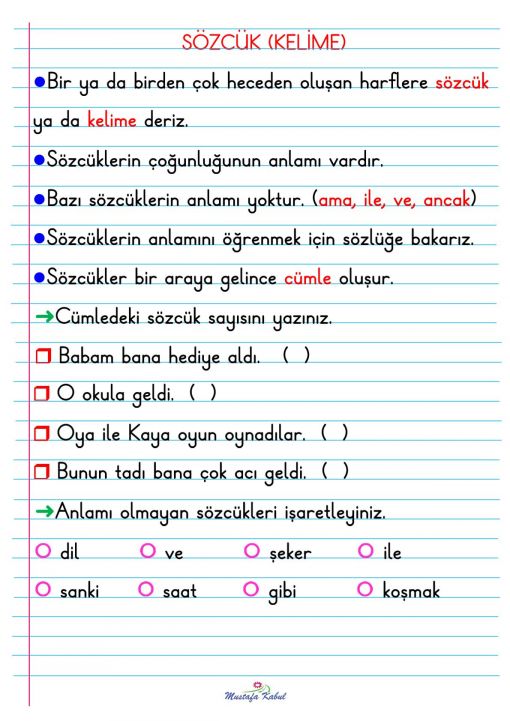 SÖZCÜK (KELİME)
●Bir ya da birden çok heceden oluşan harflere sözcük
ya da kelime deriz.
●Sözcüklerin çoğunluğunun anlamı vardır.
●Bazı sözcüklerin anlamı yoktur. (ama, ile, ve, ancak)
●Sözcüklerin anlamını öğrenmek için sözlüğe bakarız.
●Sözcükler bir araya gelince cümle oluşur.
→Cümledeki sözcük sayısını yazınız.
❒ Babam bana hediye aldı. ( )
❒ O okula geldi. ( )
❒ Oya ile Kaya oyun oynadılar. ( )
❒ Bunun tadı bana çok acı geldi. ( )
→Anlamı olmayan sözcükleri işaretleyiniz.
○ dil ○ ve ○ şeker ○ ile
○ sanki ○ saat ○ gibi ○ koşmak
Mustafa Kabul